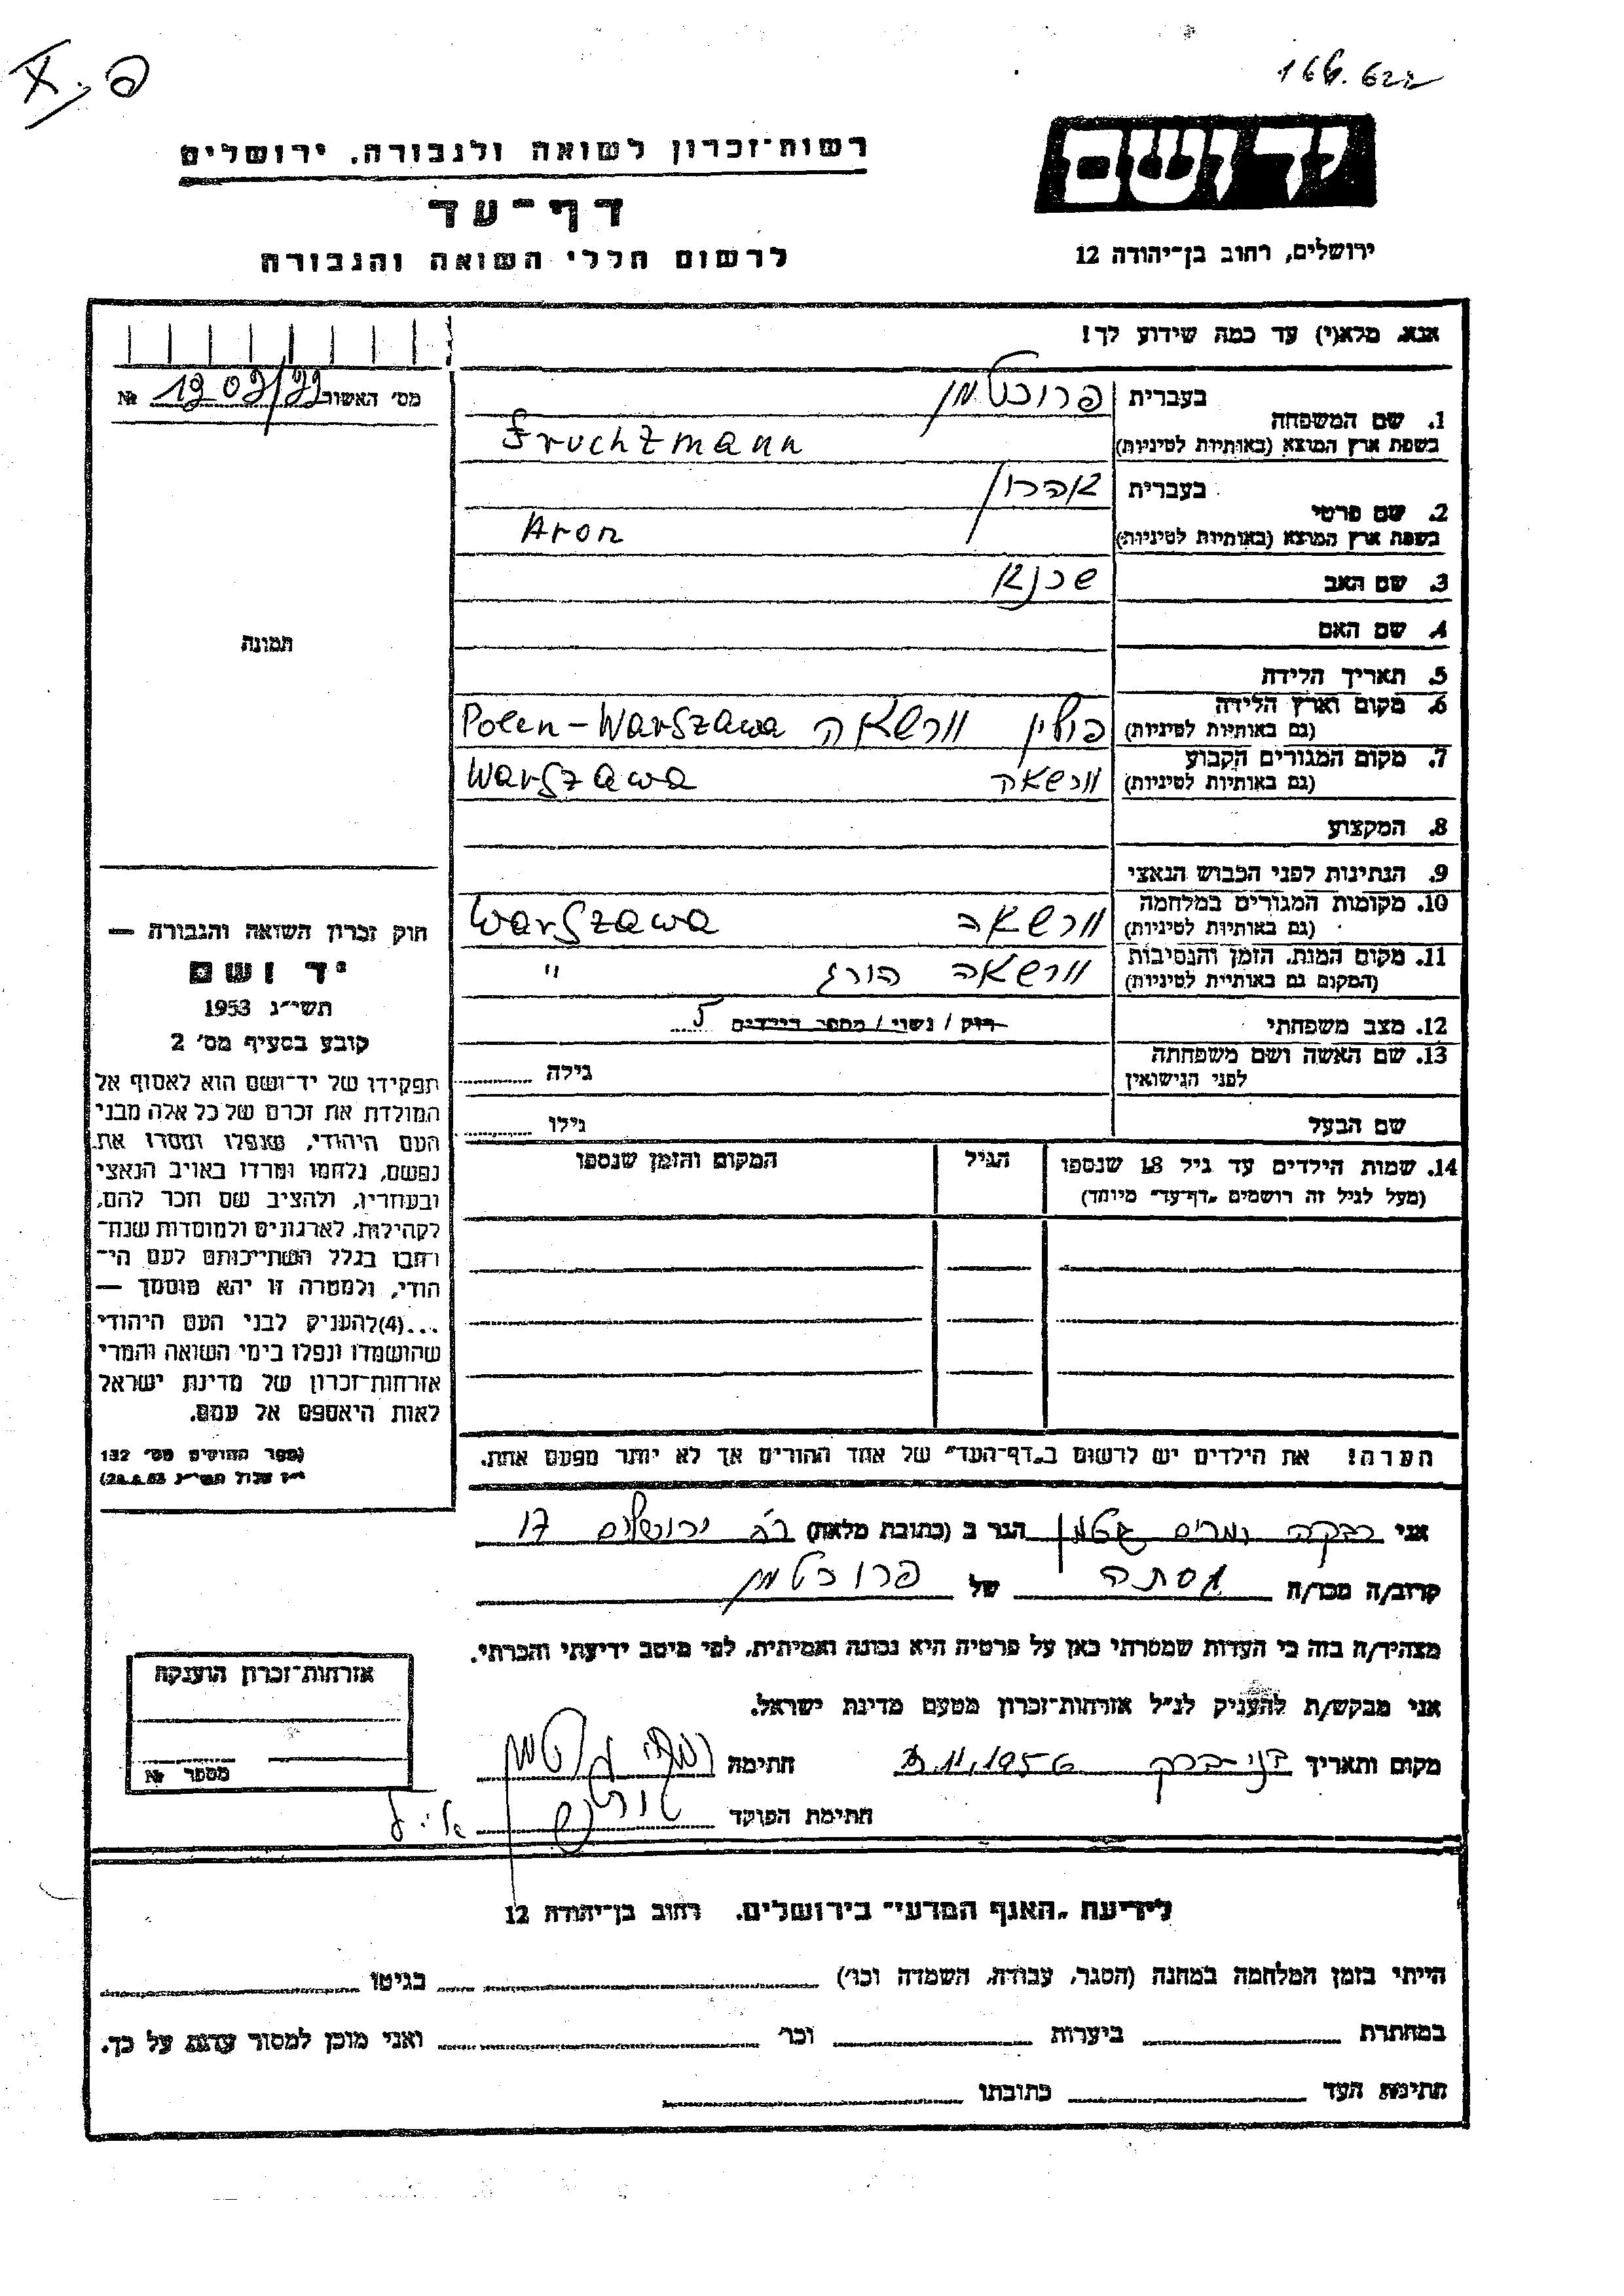 166.622
יד ושם
רשות־זכרון לשואה ולגבורה, ירושלים
דף־עד
לרשום חללי השואה והגבורה
ירושלים, רחוב בן־יהודה 12
אנא, מלא(י) עד כמה שידוע לך!
מס׳ האשור № 1907/99
1. שם המשפחה בעברית פרוכטמן
בשפת ארץ המוצא (באותיות לטיניות) Fruchzmann
2. שם פרטי בעברית אהרון
בשפת ארץ המוצא (באותיות לטיניות) Aron
3. שם האב שכנא
4. שם האם
5. תאריך הלידה
6. מקום וארץ הלידה
(גם באותיות לטיניות) פולין וורשאה Polen - Warszawa
7. מקום המגורים הקבוע
(גם באותיות לטיניות) וורשאה Warszawa
8. המקצוע
9. הנתינות לפני הכבוש הנאצי
10. מקומות המגורים במלחמה
(גם באותיות לטיניות) וורשאה Warszawa
11. מקום המות, הזמן והנסיבות
(המקום גם באותיות לטיניות) וורשאה הורג "
12. מצב משפחתי רוק / נשוי / מספר הילדים 5
13. שם האשה ושם משפחתה
לפני הנישואין גילה
שם הבעל גילו
14. שמות הילדים עד גיל 18 שנספו הגיל המקום והזמן שנספו
(מעל לגיל זה רושמים "דף־עד" מיוחד)
הערה! את הילדים יש לרשום ב"דף־העד" של אחד ההורים אך לא יותר מפעם אחת.
תמונה
חוק זכרון השואה והגבורה —
יד ושם
תשי״ג 1953
קובע בסעיף מס׳ 2
תפקידו של יד־ושם הוא לאסוף אל
המולדת את זכרם של כל אלה מבני
העם היהודי, שנפלו ומסרו את
נפשם, נלחמו ומרדו באויב הנאצי
ובעוזריו, ולהציב שם וזכר להם,
לקהילות, לארגונים ולמוסדות שנח־
רבו בגלל השתייכותם לעם הי־
הודי, ולמטרה זו יהא מוסמך —
...(4)להעניק לבני העם היהודי
שהושמדו ונפלו בימי השואה והמרי
אזרחות־זכרון של מדינת ישראל
לאות היאספם אל עמם.
(ספר החוקים מס׳ 132
י״ז אלול תשי״ג 28.8.53)
אני רבקה ומרים גוטמן הגר ב (כתובת מלאה) ר"ג ירושלים 17
קרוב/ה מכר/ה של פרוכטמן
מצהיר/ה בזה כי העדות שמסרתי כאן על פרטיה היא נכונה ואמיתית, לפי מיטב ידיעתי והכרתי.
אני מבקש/ת להעניק לנ״ל אזרחות־זכרון מטעם מדינת ישראל.
מקום ותאריך בני-ברק 11.1956 חתימה
חתימת הפוקד
אזרחות־זכרון הוענקה
מספר №
לידיעת "האגף המדעי" בירושלים, רחוב בן־יהודה 12
הייתי בזמן המלחמה במחנה (הסגר, עבודה, השמדה וכו׳) בגיטו
במחתרת ביערות וכו׳ ואני מוכן למסור עדות על כך.
חתימת העד כתובתו